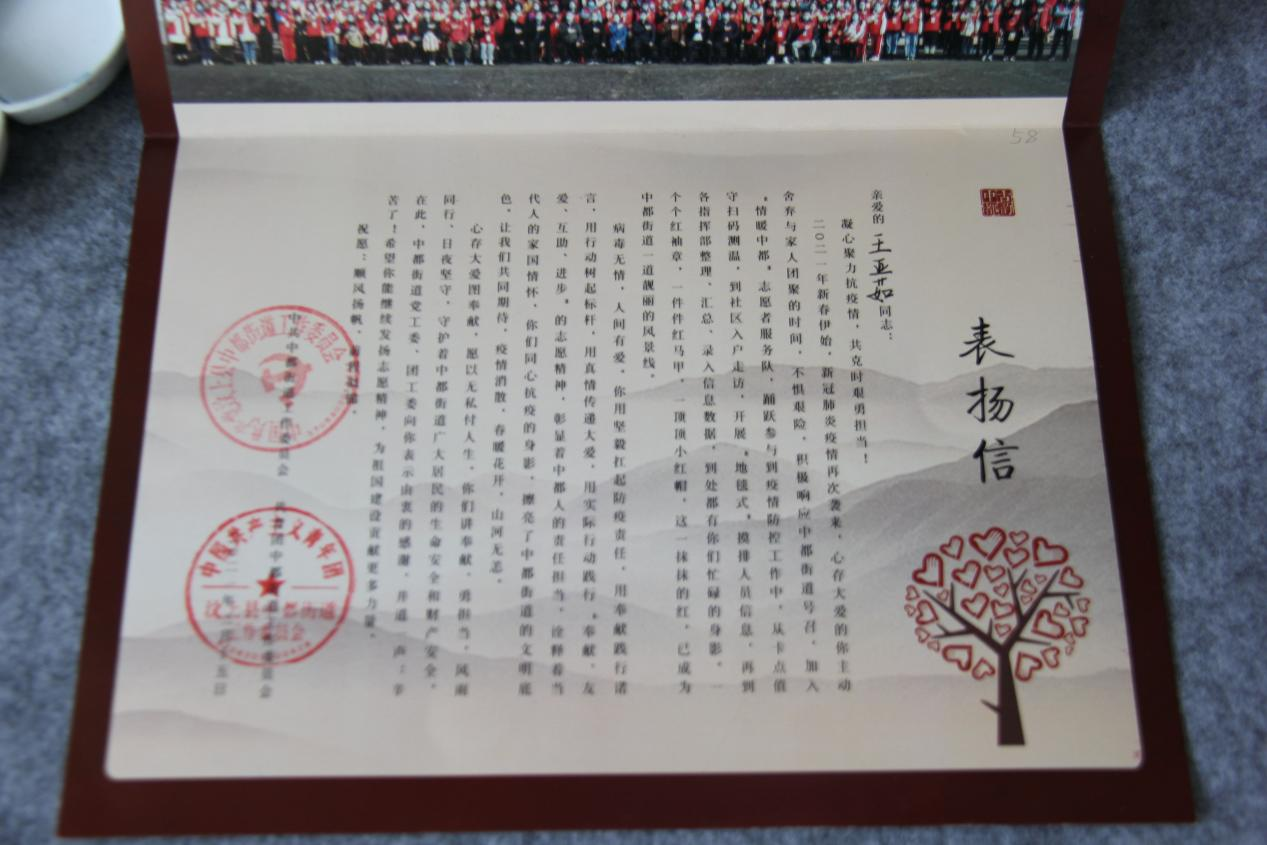 58
表扬信
亲爱的王亚茹同志：
凝心聚力抗疫情，共克时艰勇担当！
二〇二一年新春伊始，新冠肺炎疫情再次袭来，心存大爱的你主动
舍弃与家人团聚的时间，不惧艰险，积极响应中都街道号召，加入
“情暖中都”志愿者服务队，踊跃参与到疫情防控工作中，从卡点值
守扫码测温，到社区入户走访，开展“地毯式”摸排人员信息，再到
各指挥部整理、汇总、录入信息数据，到处都有你们忙碌的身影，一
个个红袖章，一件件红马甲，一顶顶小红帽，这一抹抹的红，已成为
中都街道一道靓丽的风景线。
病毒无情，人间有爱。你用坚毅扛起防疫责任，用奉献践行诺
言，用行动树起标杆，用真情传递大爱，用实际行动践行“奉献、友
爱、互助、进步”的志愿精神，彰显着中都人的责任担当，诠释着当
代人的家国情怀，你们同心抗疫的身影，擦亮了中都街道的文明底
色，让我们共同期待，疫情消散，春暖花开，山河无恙。
心存大爱图奉献，愿以无私付人生。你们讲奉献，勇担当，风雨
同行、日夜坚守，守护着中都街道广大居民的生命安全和财产安全。
在此，中都街道党工委、团工委向你表示由衷的感谢，并道一声：辛
苦了！希望你能继续发扬志愿精神，为祖国建设贡献更多力量。
祝愿：顺风扬帆，
中共中都街道工作委员会
中国共产主义青年团
汶上县中都街道
工作委员会